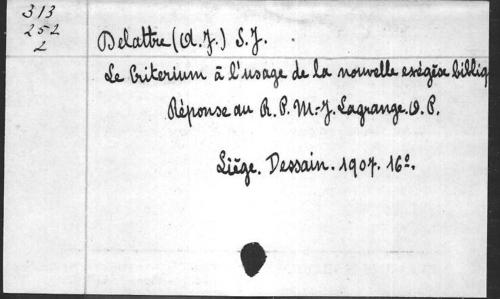 313
252
2
Delattre (A.J.) S.J.
Le Criterium à l'usage de la nouvelle exégèse bibliq
Réponse au R.P. M.-J. Lagrange. O.P.
Liège. Dessain. 1907. 16º.